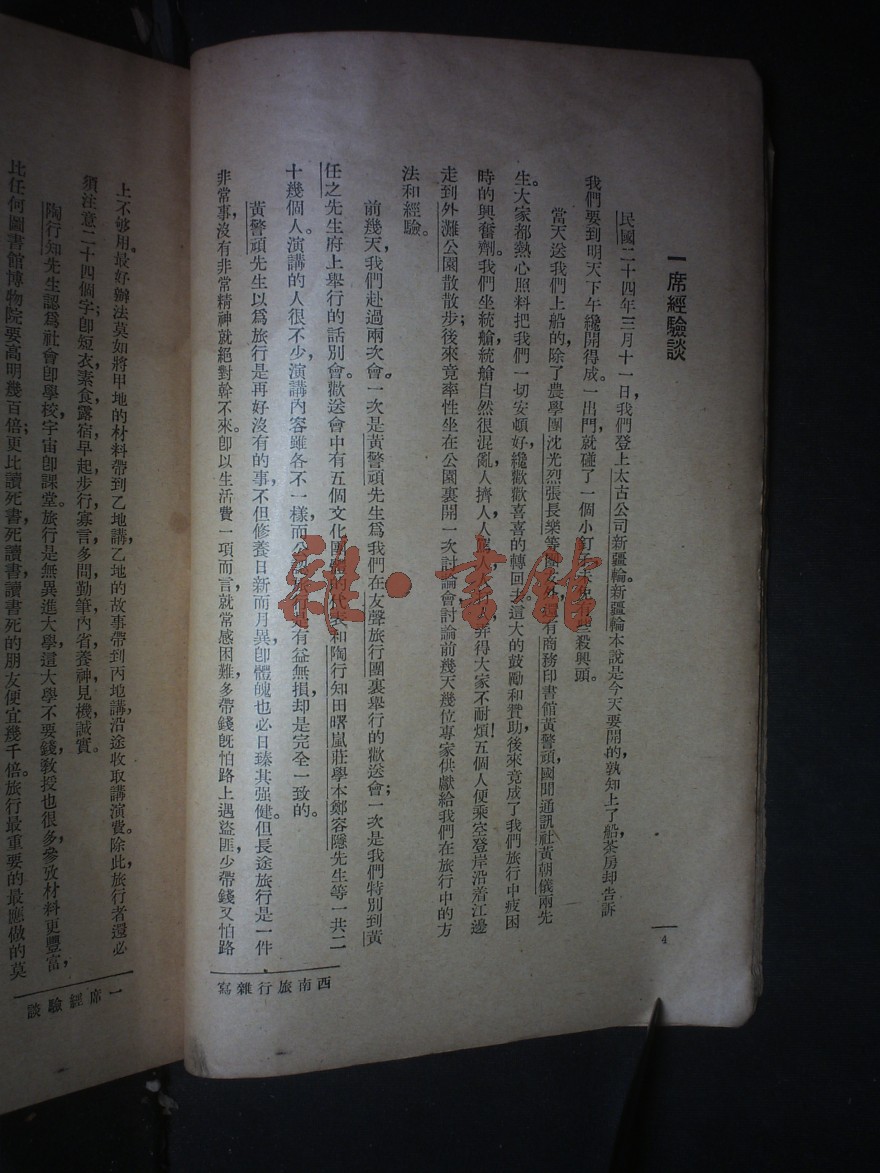 一席經驗談
民國二十四年三月十一日，我們登上太古公司新疆輪。新疆輪本說是今天要開的，孰知上了船茶房却告訴
我們要到明天下午纔開得成。一出門就碰了一個小釘子，未免有些殺興頭。
當天送我們上船的，除了農學團沈光烈張長樂等團 外還有商務印書館黃警頑，國聞通訊社黃朝儀兩先
生。大家都熱心照料把我們一切安頓好，纔歡歡喜喜的轉回去。這大的鼓勵和贊助，後來竟成了我們旅行中疲困
時的興奮劑。我們坐統艙，統艙自然很混亂，人擠人，人 人 弄得大家不耐煩！五個人便乘空登岸沿着江邊
走到外灘公園散散步；後來竟率性坐在公園裏開一次討論會，討論前幾天幾位專家供獻給我們在旅行中的方
法和經驗。
前幾天，我們赴過兩次會。一次是黃警頑先生爲我們在友聲旅行團裏舉行的歡送會；一次是我們特別到黃
任之先生府上舉行的話別會。歡送會中有五個文化團體的代表和陶行知田曙嵐莊學本鄭容隱先生等一共二
十幾個人。演講的人很不少，演講內容雖各不一樣，而公認旅行是有益無損，却是完全一致的。
黃警頑先生以爲旅行是再好沒有的事，不但修養日新而月異，卽體魄也必日臻其强健。但長途旅行是一件
非常事，沒有非常精神就絕對幹不來。卽以生活費一項而言，就常感困難，多帶錢旣怕路上遇盜匪，少帶錢又怕路
4
西南旅行雜寫
上不够用。最好辦法莫如將甲地的材料帶到乙地講，乙地的故事帶到丙地講，沿途收取講演費。除此，旅行者還必
須注意二十四個字：卽短衣素食，露宿早起，步行，寡言，多問，勤筆，內省，養神，見機，誠實。
陶行知先生認爲社會卽學校，宇宙卽課堂。旅行是無異進大學，這大學不要錢，敎授也很多，參攷材料更豐富，
比任何圖書館博物院要高明幾百倍；更比讀死書，死讀書，讀書死的朋友便宜幾千倍。旅行最重要的最應做的莫
一席經驗談
雜·書館